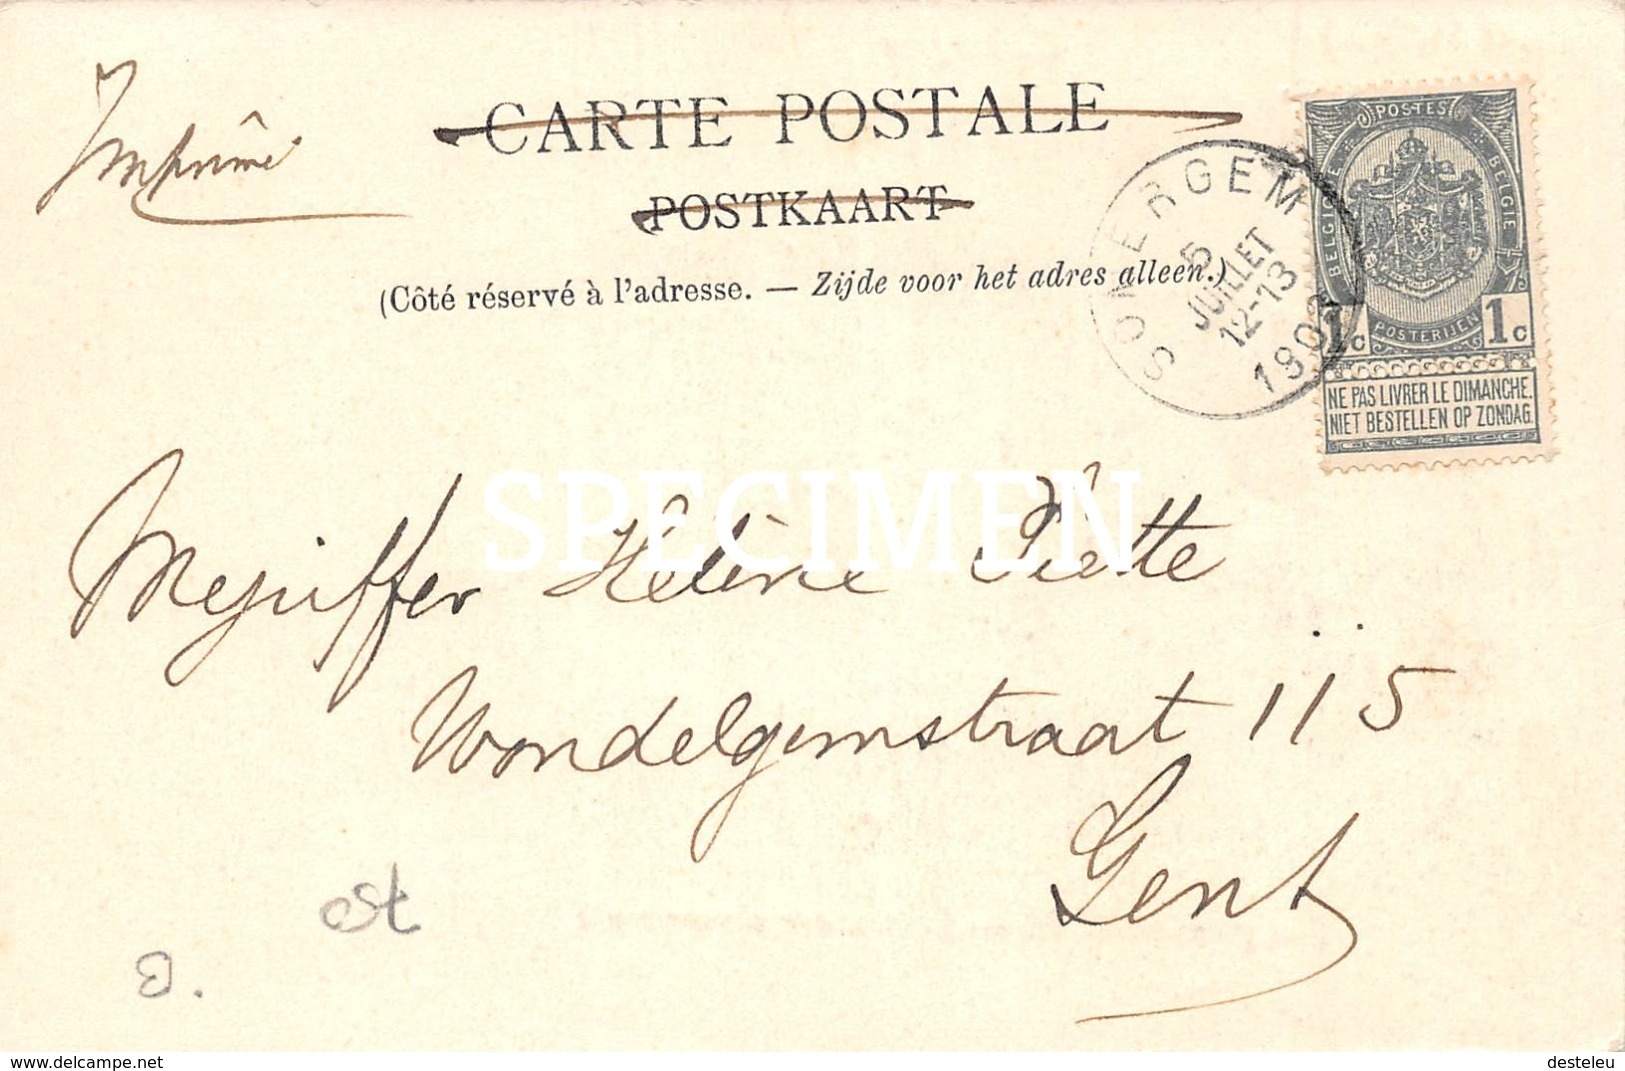 Imprimé
CARTE POSTALE
POSTKAART
(Côté réservé à l'adresse. — Zijde voor het adres alleen.)
SOMERGEM
5
JUILLET
12-13
POSTES
BELGIQUE
BELGIE
POSTERIJEN
1c 1c
NE PAS LIVRER LE DIMANCHE.
NIET BESTELLEN OP ZONDAG.
SPECIMEN
Mejuffer Hélène Piette
Wondelgemstraat 115
Gent
http://www.delcampe.net
desteleu